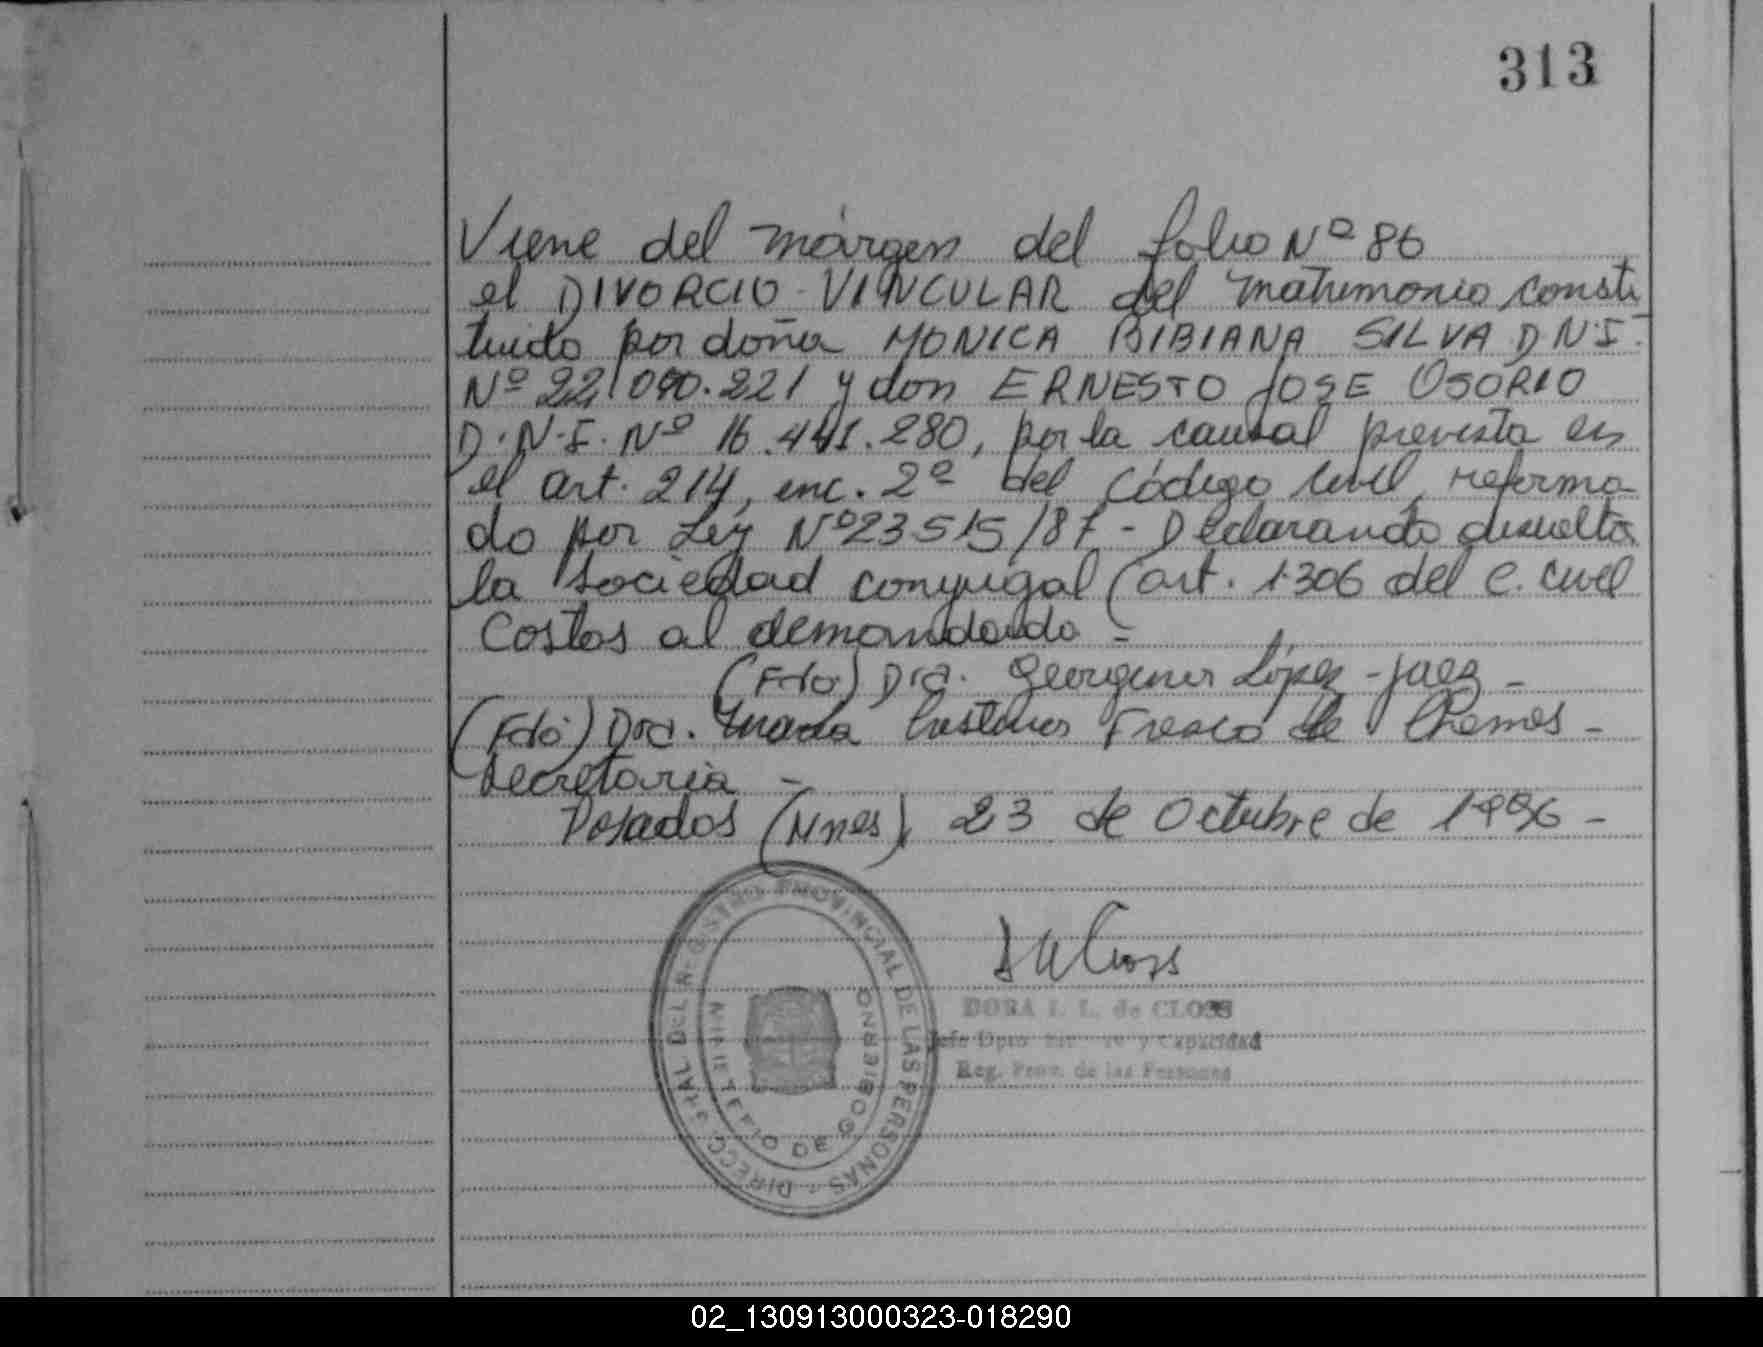 313
Viene del márgen del folio Nº 86
el DIVORCIO VINCULAR del matrimonio consti
tuido por doña MONICA BIBIANA SILVA D.N.I.
Nº 22.090.221 y don ERNESTO JOSE OSORIO
D.N.I. Nº 16.441.280, por la causal prevista en
el art. 214, inc. 2º del Código Civil, reforma
do por Ley Nº 23515/87 - Declarando disuelta
la sociedad conyugal (art. 1306 del C. Civil
Costas al demandado -
(Fdo) Dra. Georgina López - juez -
(Fdo) Dra. María Fresco de Chemes -
Secretaria -
Posadas (Mnes), 23 de Octubre de 1996 -
DIRECC. GRAL DEL REGISTRO PROVINCIAL DE LAS PERSONAS -
MINISTERIO DE GOBIERNO
DORA I. L. de CLOSS
Jefe Dpto. y Capacidad
Reg. Prov. de las Personas
02_130913000323-018290